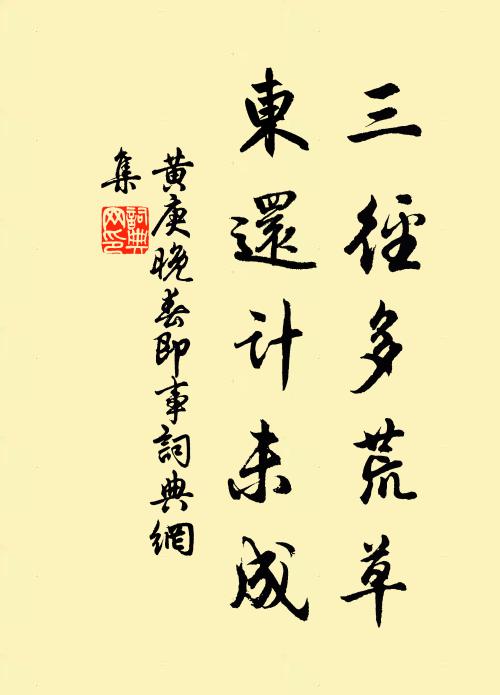 三徑多荒草
東還計未成
黄庚晚春即事詞典網
集
詞典网印